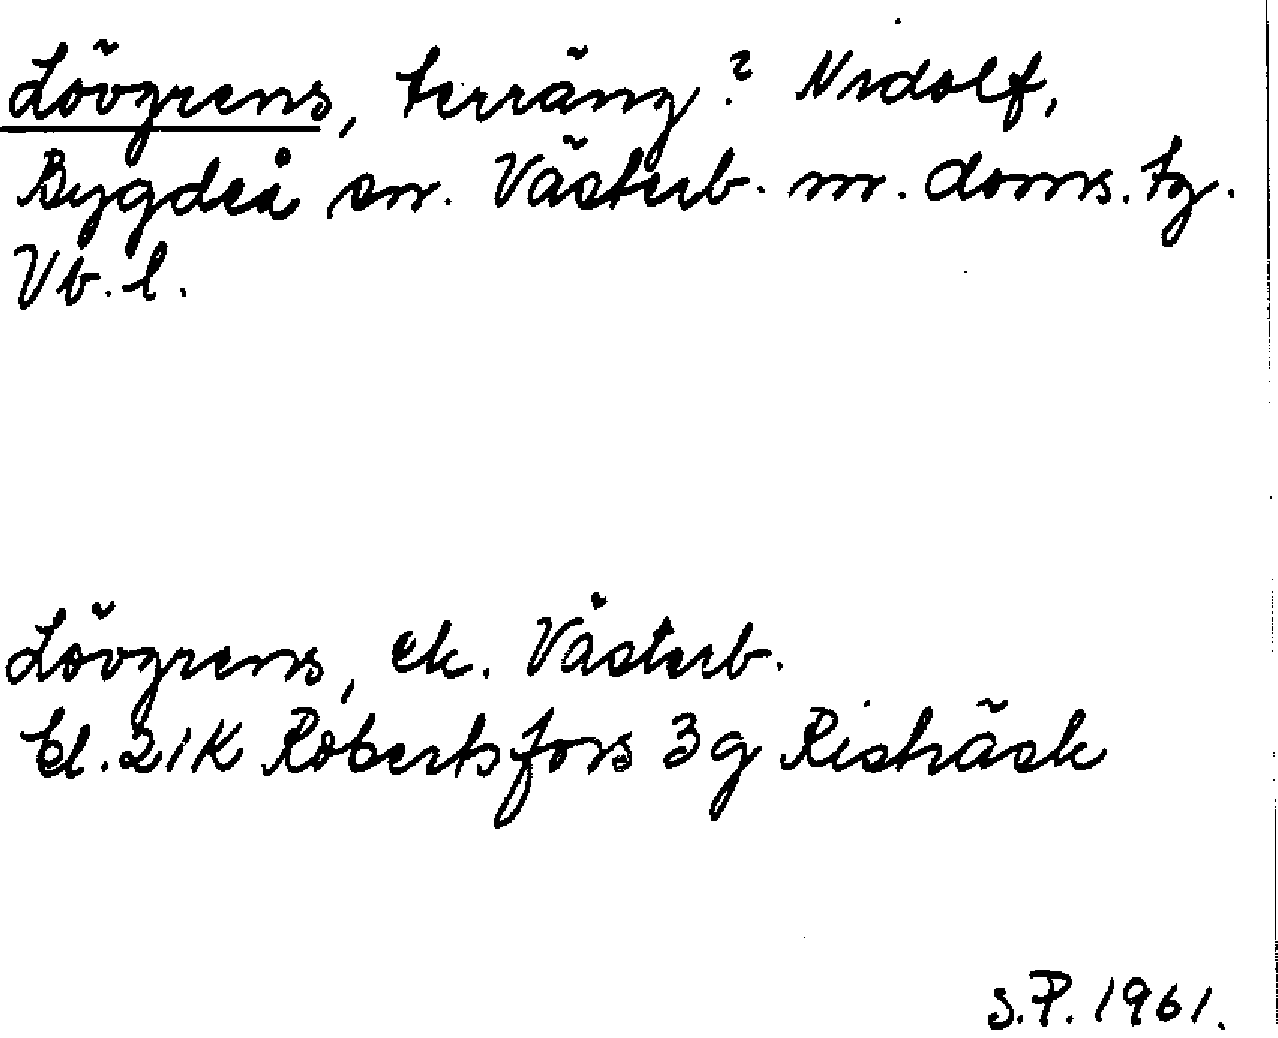 Lövgrens, terräng? Nrdolf,
Bygdeå sn. Västerb. n. doms. tg.
Vb. l.
Lövgrens, ek. Västerb.
bl. 21K Robertsfors 3g Risträsk
S.P. 1961.